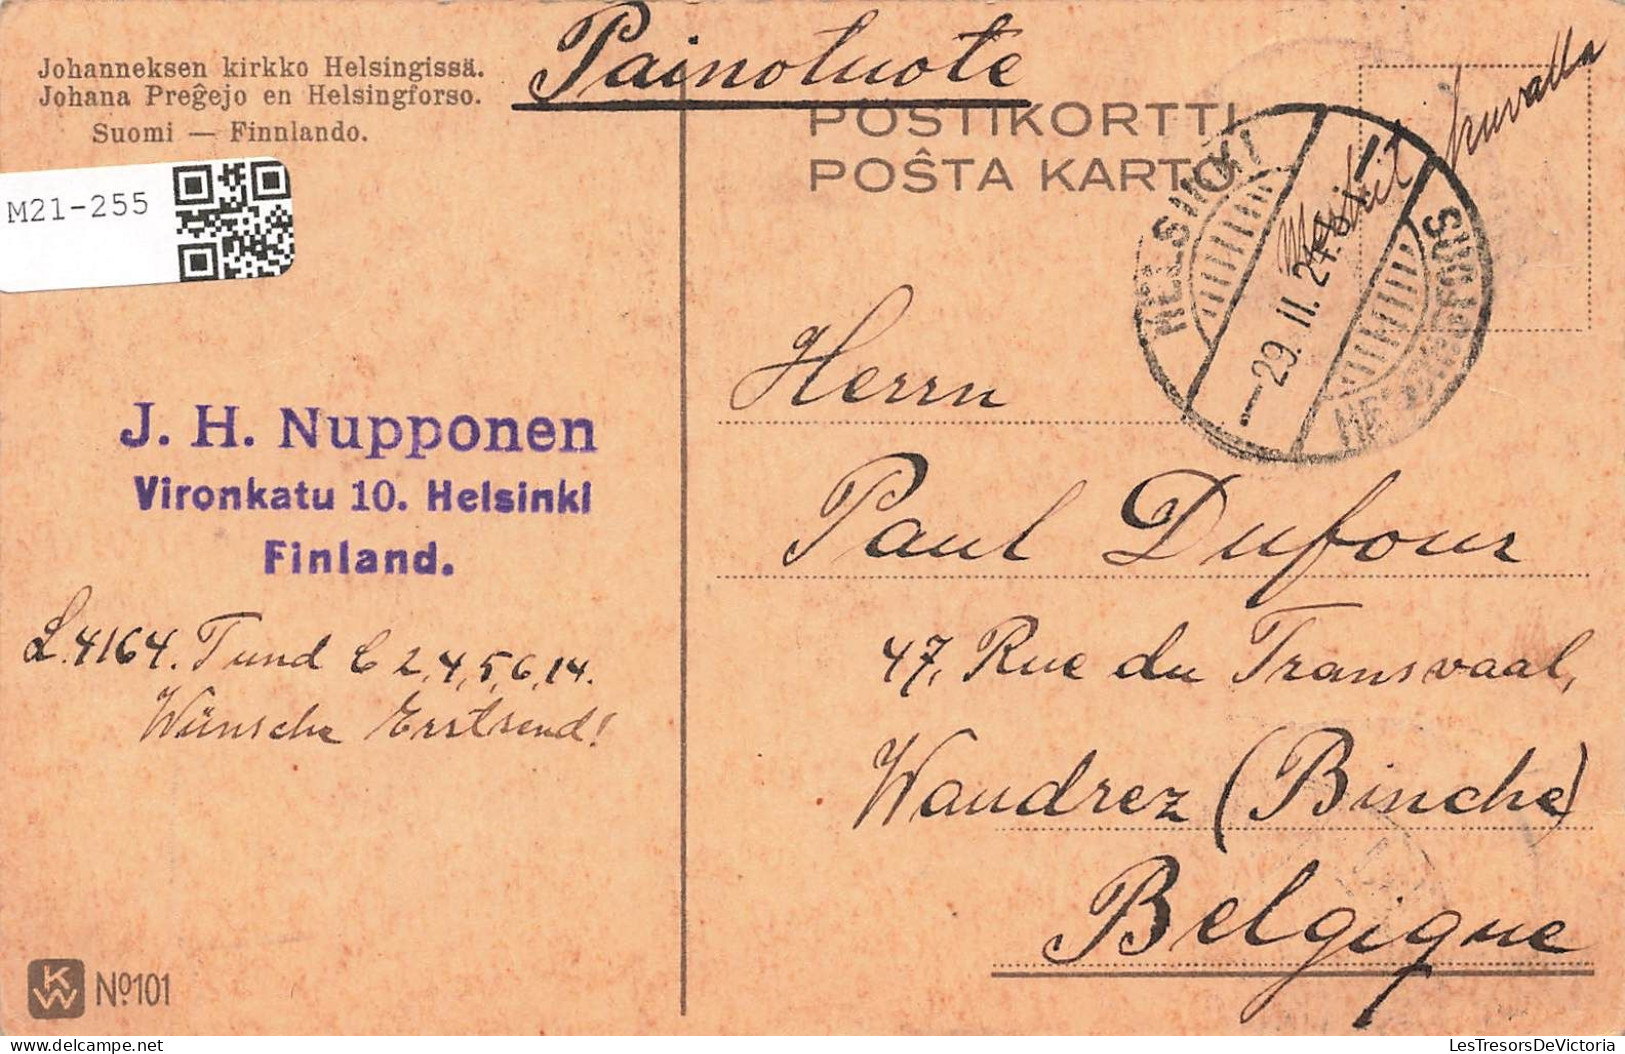 Johanneksen kirkko Helsingissä.
Johana Preĝejo en Helsingforso.
Suomi — Finnlando.
Painotuote
POSTIKORTTI
POŜTA KARTO
Merkit kuvalla
HELSINKI
29. II. 24.
M21-255
J. H. Nupponen
Vironkatu 10. Helsinki
Finland.
L. 4164. T und C 2,4,5,6,14.
Wünsche
Herrn
Paul Dufour
47, Rue du Transvaal,
Waudrez (Binche)
Belgique
KW Nº101
LesTresorsDeVictoria